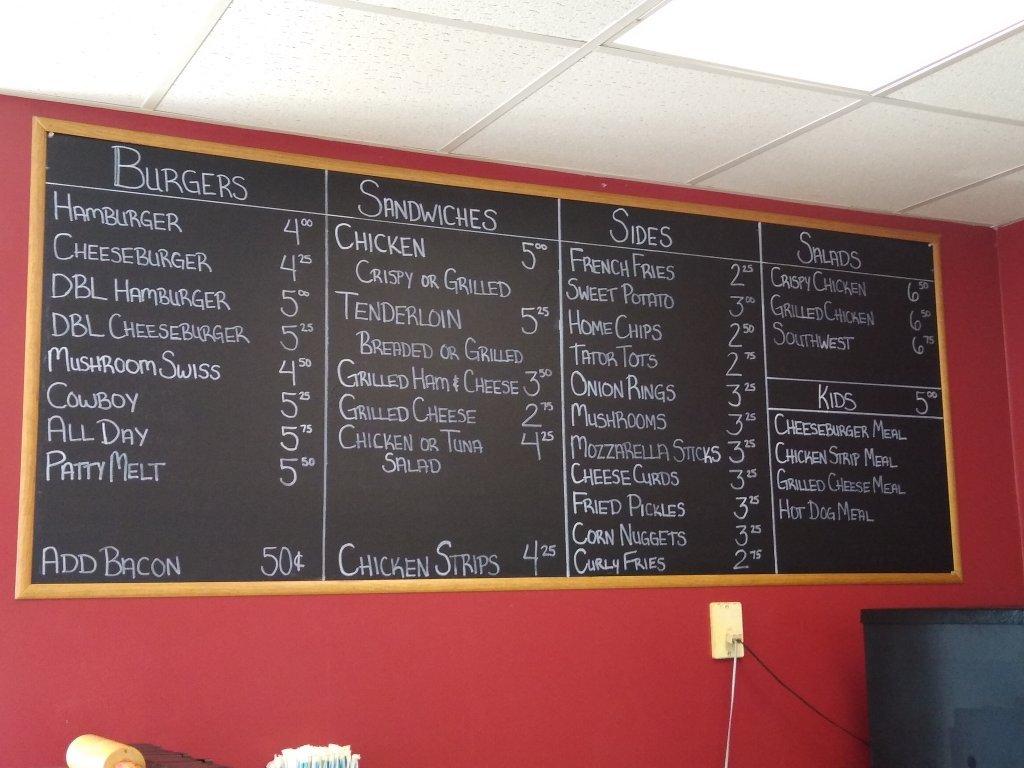 BURGERS
HAMBURGER 4.00
CHEESEBURGER 4.25
DBL HAMBURGER 5.00
DBL CHEESEBURGER 5.25
MUSHROOM SWISS 4.50
COWBOY 5.25
ALL DAY 5.75
PATTY MELT 5.50
ADD BACON 50¢
SANDWICHES
CHICKEN 5.00
CRISPY OR GRILLED
TENDERLOIN 5.25
BREADED OR GRILLED
GRILLED HAM & CHEESE 3.50
GRILLED CHEESE 2.75
CHICKEN OR TUNA 4.25
SALAD
CHICKEN STRIPS 4.25
SIDES
FRENCH FRIES 2.25
SWEET POTATO 3.00
HOME CHIPS 2.50
TATOR TOTS 2.75
ONION RINGS 3.25
MUSHROOMS 3.25
MOZZARELLA STICKS 3.25
CHEESE CURDS 3.25
FRIED PICKLES 3.25
CORN NUGGETS 3.25
CURLY FRIES 2.75
SALADS
CRISPY CHICKEN 6.50
GRILLED CHICKEN 6.50
SOUTHWEST 6.75
KIDS 5.00
CHEESEBURGER MEAL
CHICKEN STRIP MEAL
GRILLED CHEESE MEAL
HOT DOG MEAL